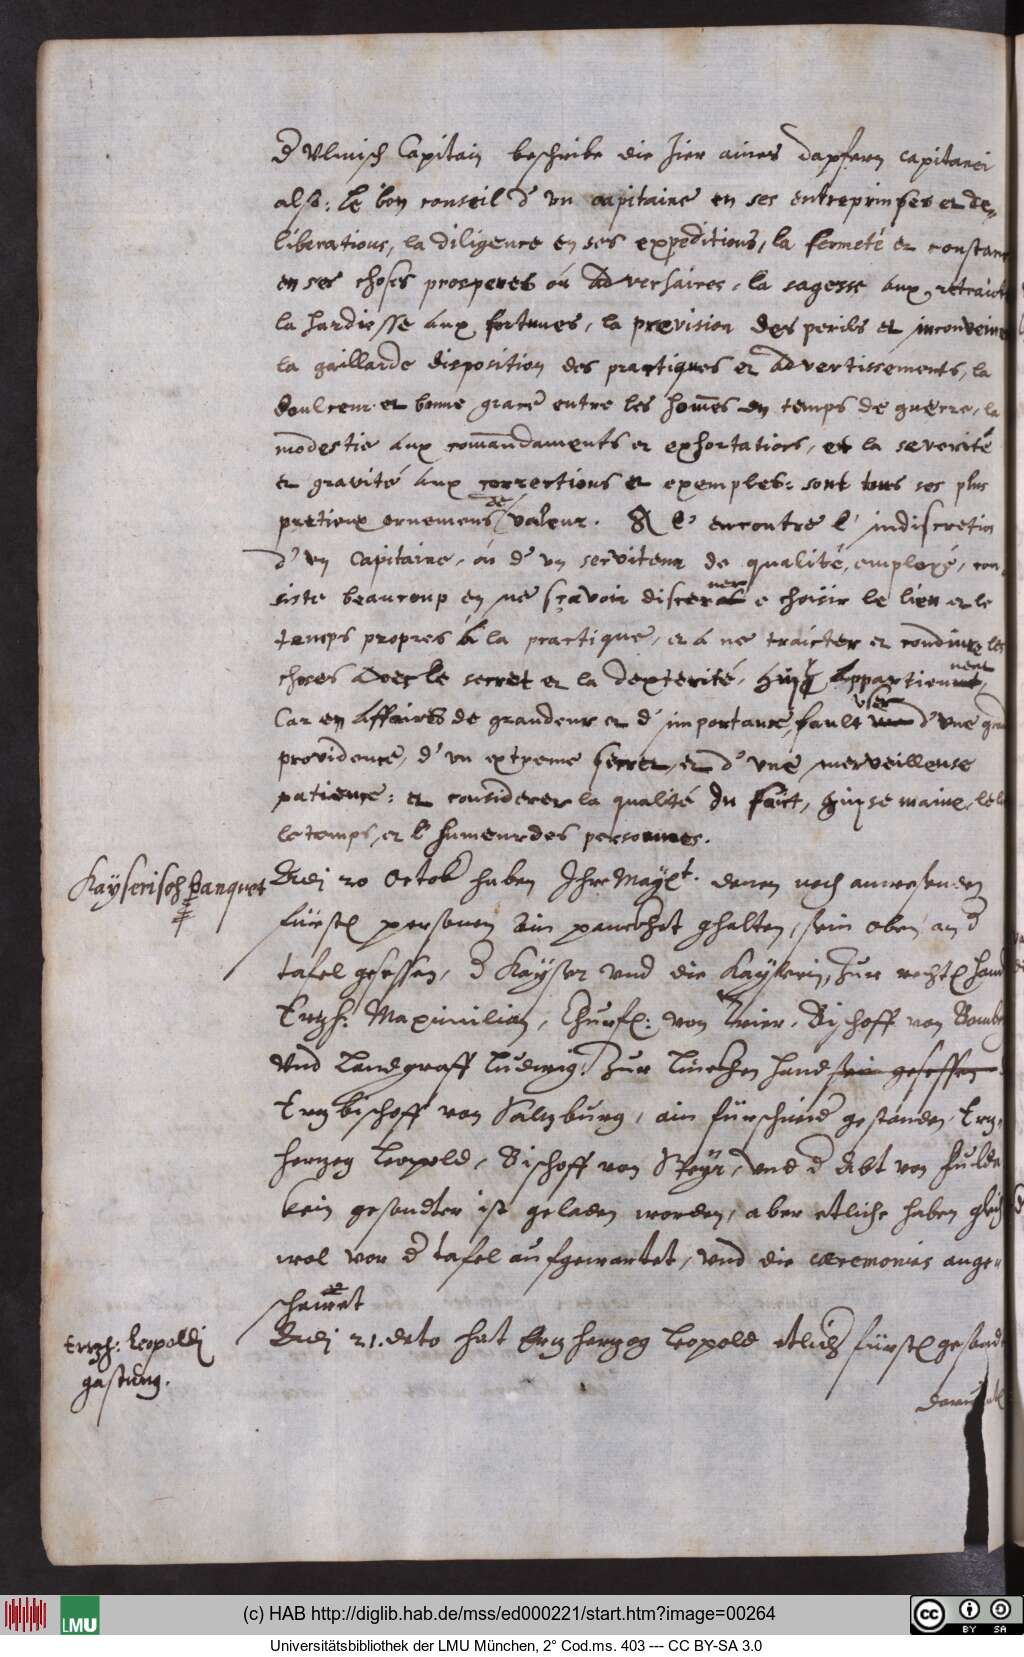 d Ulmisch Capitain beschribe die Zier aines dapfern capitanei
also: le bon conseil d' vn capitaine en ses entreprinses et de-
liberations, la diligence en ses expeditions, la fermeté et constan
en ses choses prosperes ou adversaires, la sagesse aux retraict
la hardiesse aux fortunes, la prevision des perils et inconvenie
la gaillarde disposition des practiques et advertissements, la
doulceur et bonne grace entre les homes en temps de guerre, la
modestie aux comandaments et exhortations, et la severité
et gravité aux corrections et exemples: sont tous ses plus
pretieux ornemens de valeur. A l' encontre l' indiscretion
d' vn Capitaine, ou d' vn serviteur de qualité, employé, con
siste beaucoup en ne sçavoir discerner e choisir le lieu et le
temps propres à la practique, et à ne traicter et conduire les
choses avec le secret et la dexterité, qui y appartiennent,
Car en affaires de grandeur et d' importance, fault vser d' vne grand
providence, d' vn extreme secret, et d' vne merveilleuse
patience: et considerer la qualité du faict, qui se manie, le lie
le temps, et l' humeur des personnes.
Kaÿserisch Banquet
Den 20 Octob haben Ihr Maÿet. denen noch anwesenden
fürstl personen ein panckhet ghalten, sein oben an d
tafel gesessen, d Kaÿser vnd die Kaÿserin, zur rechten hand
Ertzh: Maximilian, Churf: von Trier, Bischoff von Bamb
vnd Landgraff Ludwig. Zur linckhen hand sein gesessen
Ertzbischoff von Saltzburg, ain fürschneid gestanden, Ertz-
hertzog Leopold, Bischoff von Speÿr, vnd d Abt von Fulda
kein gesandter ist geladen worden, aber etliche haben gleich
wol vor d tafel aufgewartet, vnd die cæremonias ange-
schawet
Ertzh: Leopoldi
gastung.
Den 21. dito hat Ertzhertzog Leopold etlich fürstl gesand
(c) HAB http://diglib.hab.de/mss/ed000221/start.htm?image=00264
LMU
cc BY SA
Universitätsbibliothek der LMU München, 2° Cod.ms. 403 --- CC BY-SA 3.0